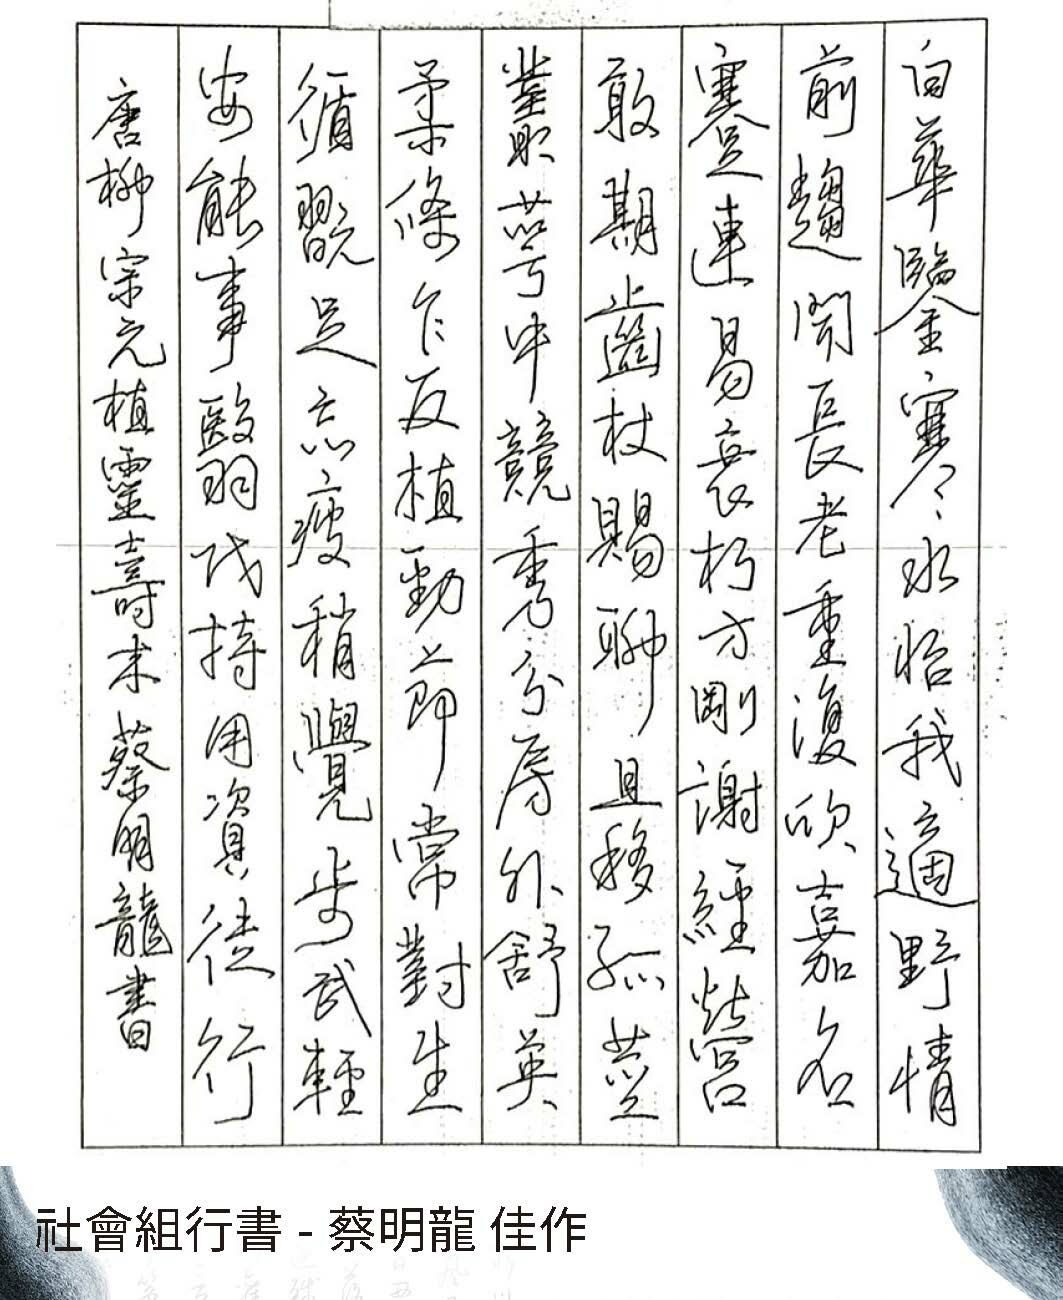 白華鑒寒水怡我適野情
前趨問長老重復欣嘉名
蹇連易衰朽方剛謝經營
敢期齒杖賜聊且移孤莖
叢萼中競秀分房外舒英
柔條乍反植勁節常對生
循翫足忘疲稍覺步武輕
安能事翳伐持用資徒行
唐柳宗元植靈壽木 蔡明龍書
社會組行書 - 蔡明龍 佳作